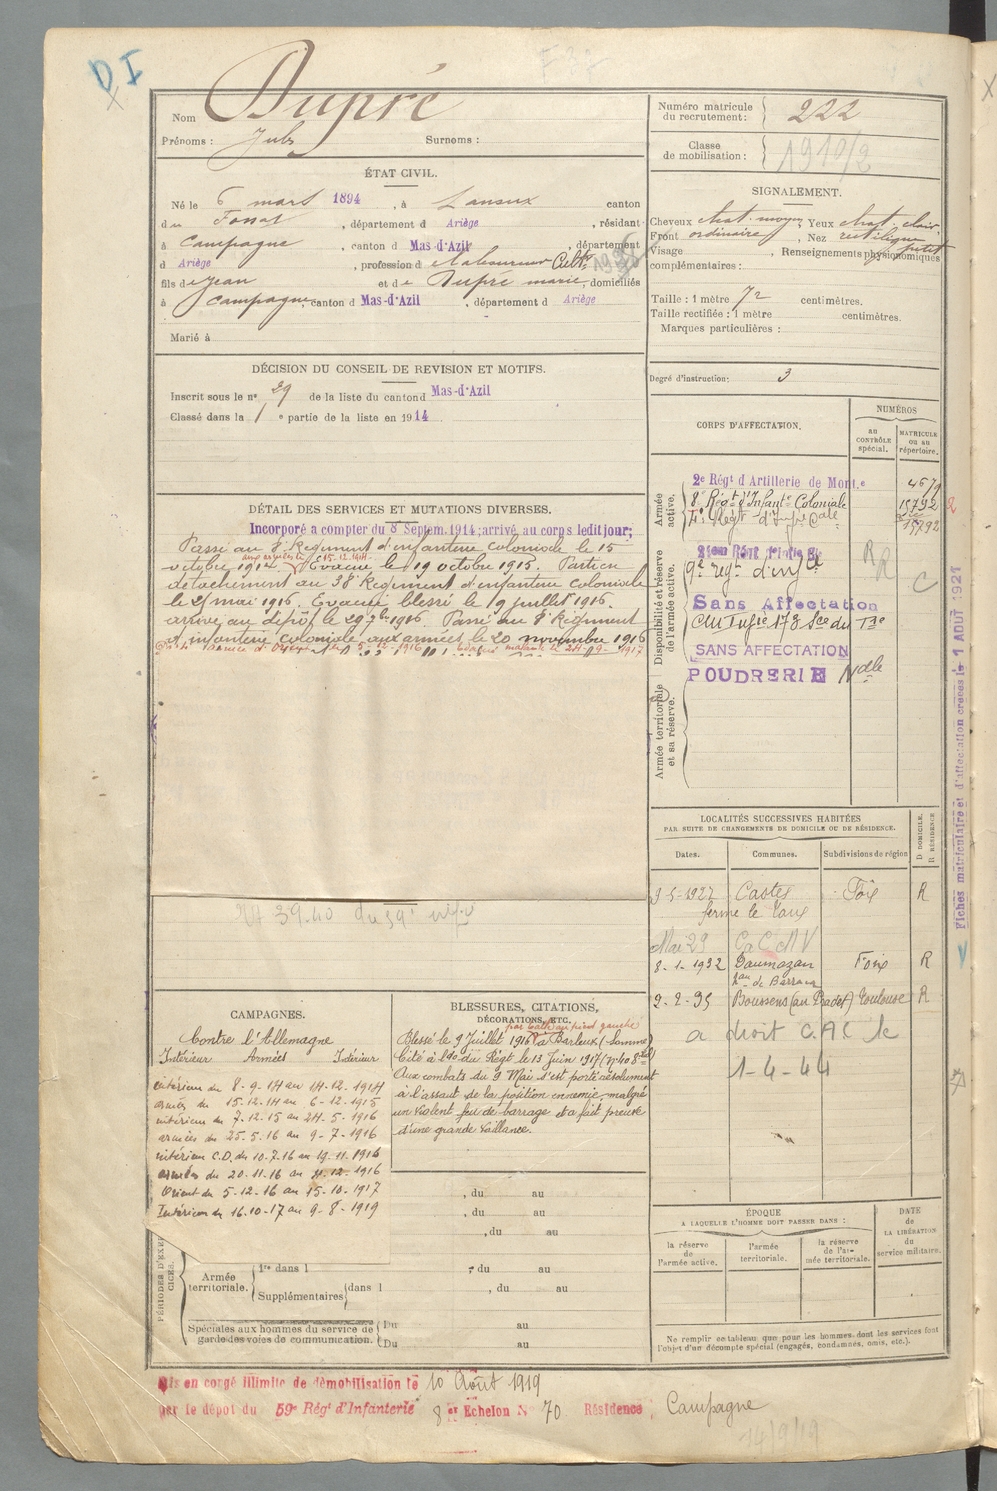 D I
Nom Dupré
Prénoms : Jules Surnoms :
ÉTAT CIVIL.
Né le 6 mars 1894, à Lanoux canton
du Fossat, département d Ariège, résidant
à Campagne, canton d Mas-d'Azil, département
d Ariège, profession d Cultr
fils de Jean et de Dupré marie, domiciliés
à Campagne, canton d Mas-d'Azil, département d Ariège
Marié à
DÉCISION DU CONSEIL DE REVISION ET MOTIFS.
Inscrit sous le no 29 de la liste du canton d Mas-d'Azil
Classé dans la 1e partie de la liste en 1914
DÉTAIL DES SERVICES ET MUTATIONS DIVERSES.
Incorporé a compter du 8 Septem. 1914; arrivé au corps ledit jour;
Passé au 8e Régiment d'infanterie coloniale le 15
aux armées le 15.12.1914
octobre 1914. Evacué le 19 octobre 1915. Parti en
détachement au 38e Régiment d'infanterie Coloniale
le 25 mai 1916. Evacué blessé le 9 juillet 1916.
arrivé au dépôt le 29 7bre 1916. Passé au 8e Régiment
d'infanterie coloniale aux armées le 20 novembre 1916
armée d'Orient le 5-12-1916 Evacué malade le 24-9-1917
CAMPAGNES.
Contre l'Allemagne
Intérieur Armées Intérieur
intérieur du 8-9-14 au 14-12-1914
armées du 15.12.14 au 6-12-1915
intérieur du 7.12.15 au 24.5-1916
armées du 25.5.16 au 9-7-1916
intérieur C.D. du 10.7.16 au 19-11-1916
armées du 20.11.16 au 11.12-1916
Orient du 5-12.16 au 15-10-1917
Intérieur du 16.10-17 au 9-8-1919
BLESSURES, CITATIONS,
DÉCORATIONS, ETC.
par balle au pied gauche
Blessé le 9 Juillet 1916 à Barleux (Somme)
Cité à l'o. du Régt le 13 Juin 1917
Aux combats du 9 Mai s'est porté résolument
à l'assaut de la position ennemie malgré
un violent feu de barrage et a fait preuve
d'une grande vaillance.
, du au
, du au
, du au
PÉRIODES D'EXERCICES.
Armée territoriale.
1re dans l
, du au
Supplémentaires dans l
, du au
Spéciales aux hommes du service de
garde des voies de communication.
Du au
Du au
Mis en congé illimité de démobilisation le 10 Août 1919
par le dépôt du 59e Régt d'Infanterie 8er Echelon N° 70 Résidence, Campagne
14/9/19
Numéro matricule
du recrutement : 222
Classe
de mobilisation : 1910/2
SIGNALEMENT.
Cheveux chat. moyen, Yeux chat. clair
Front ordinaire, Nez rectiligne
Visage , Renseignements physionomiques petit
complémentaires :
Taille : 1 mètre 72 centimètres.
Taille rectifiée : 1 mètre centimètres.
Marques particulières :
Degré d'instruction : 3
CORPS D'AFFECTATION.
NUMÉROS
au CONTRÔLE spécial.
MATRICULE ou au répertoire.
Armée active.
2e Régt d'Artillerie de Mont.e 4679
8e Régt d'Infante Coloniale 15792
4e Régt d'Infie Cale 15792
Disponibilité et réserve de l'armée active.
9e regt d'infie
Sans Affectation
178
SANS AFFECTATION
POUDRERIE Ndle
Armée territoriale et sa réserve.
R
C
Fiches matriculaire et d'affectation créées le 1 AOUT 1921
LOCALITÉS SUCCESSIVES HABITÉES
PAR SUITE DE CHANGEMENTS DE DOMICILE OU DE RÉSIDENCE.
Dates. Communes. Subdivisions de région. D DOMICILE. R RÉSIDENCE
9-5-1927 Castex Foix R
ferme le
Mai 29
8-1-1932 Daumazan Foix R
9-2-35 Boussens Toulouse R
a droit C.A.C le
1-4-44
ÉPOQUE
A LAQUELLE L'HOMME DOIT PASSER DANS :
la réserve de l'armée active.
l'armée territoriale.
la réserve de l'armée territoriale.
DATE de LA LIBÉRATION du service militaire.
Ne remplir ce tableau que pour les hommes dont les services font
l'objet d'un décompte spécial (engagés, condamnés, omis, etc.).